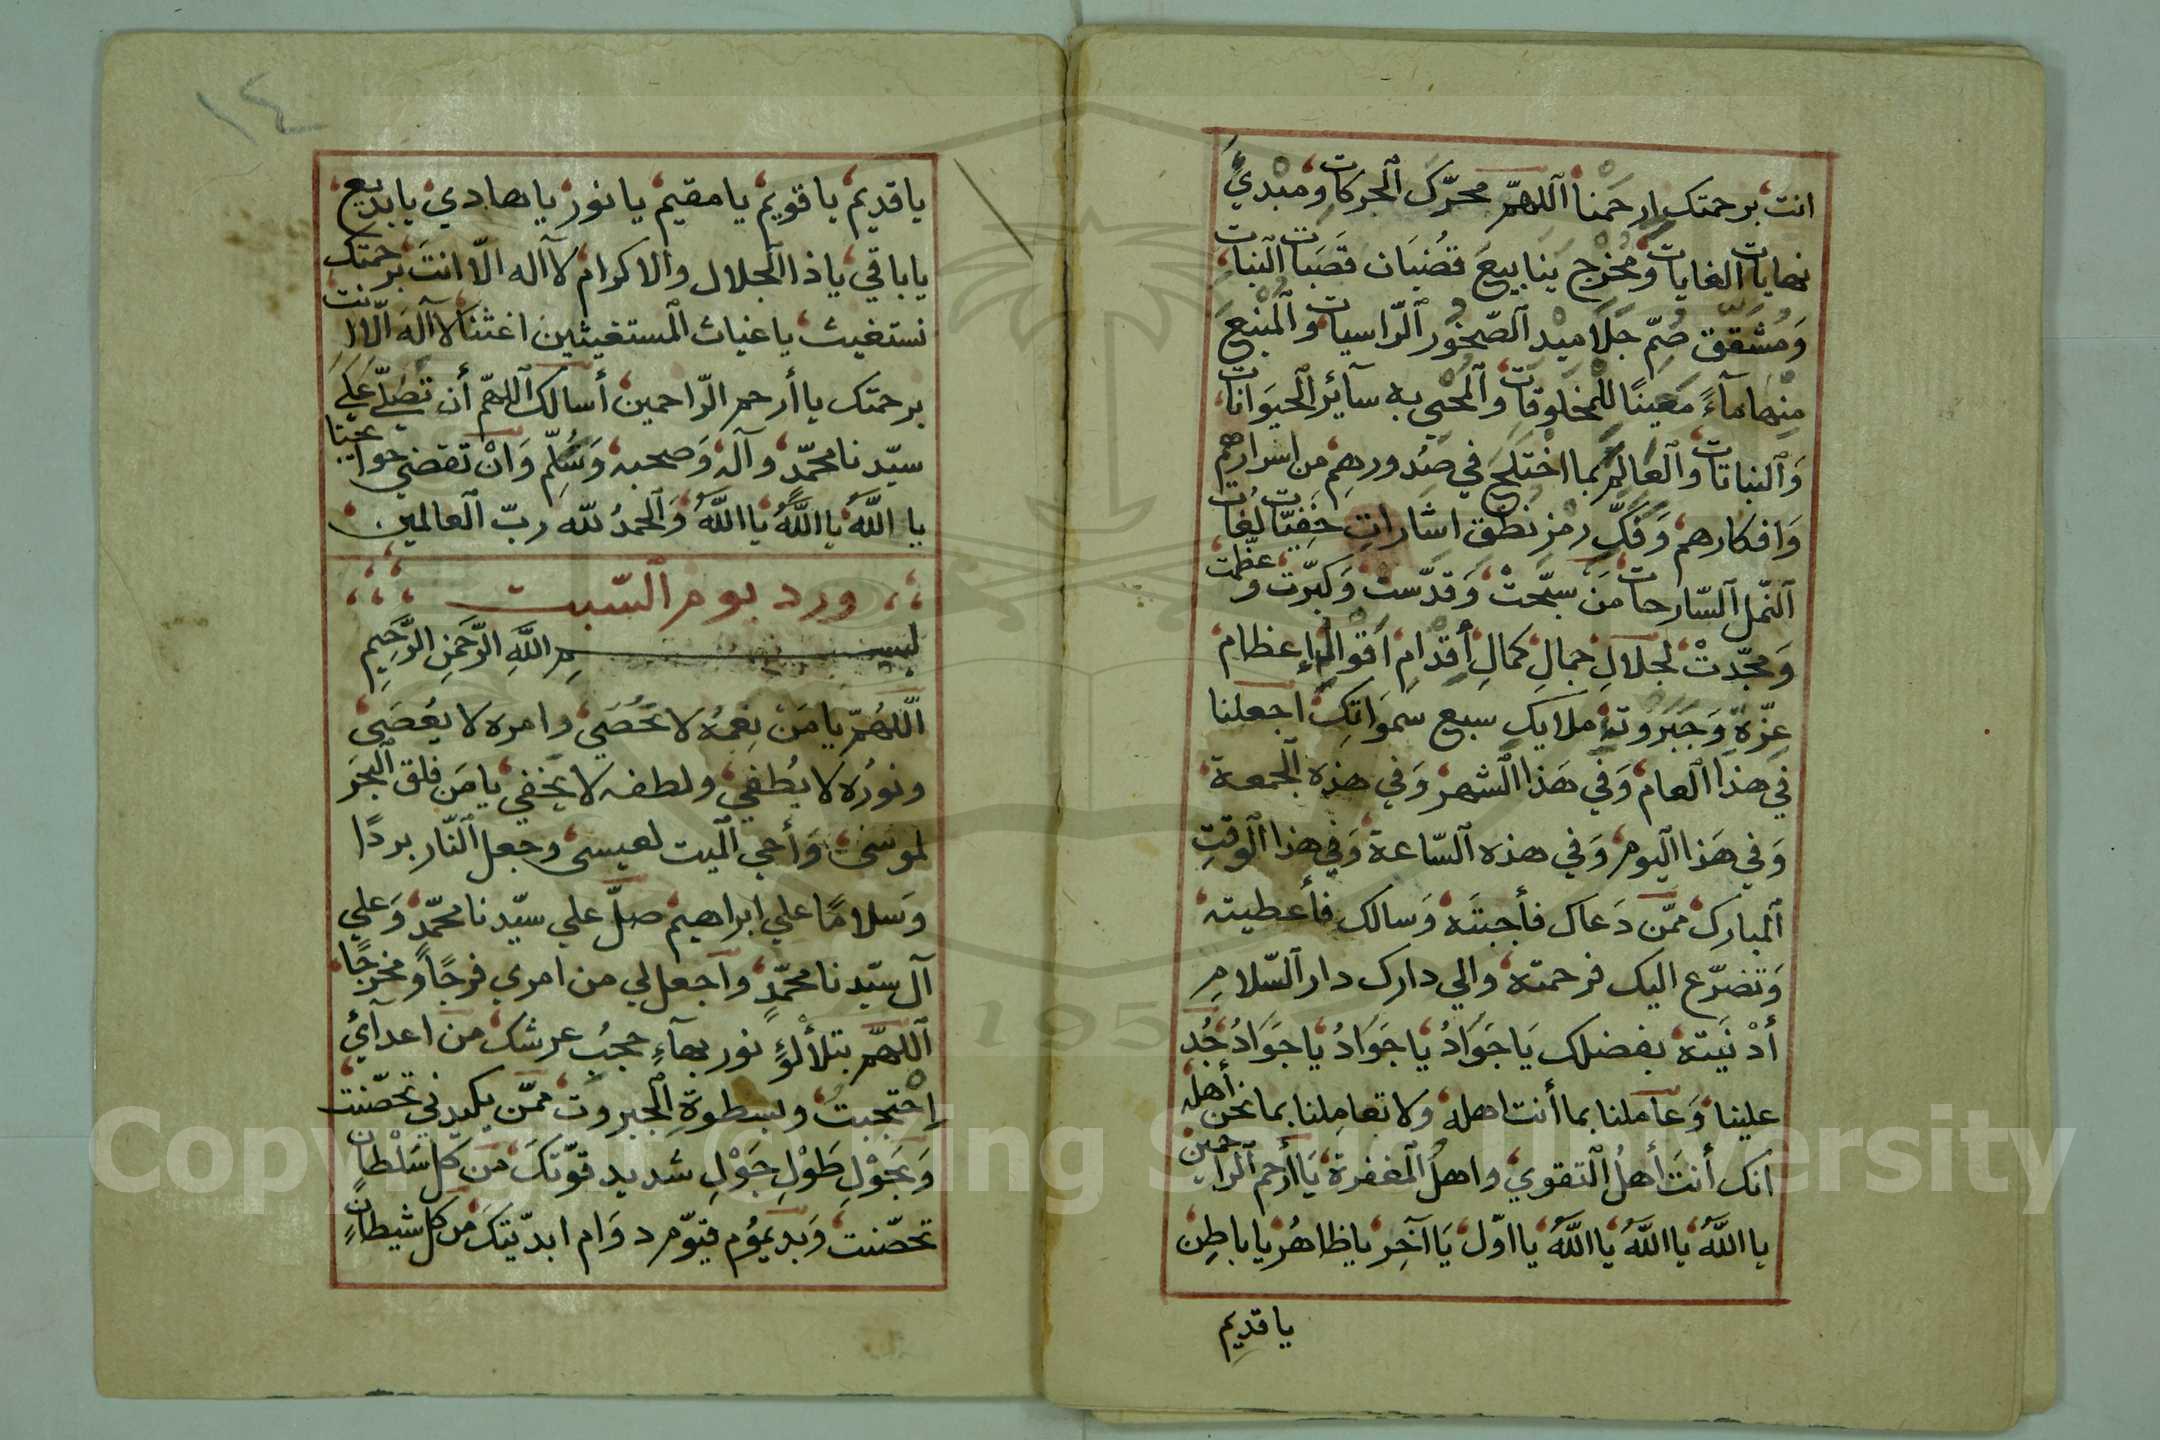 انت برحمتك ارحمنا اللهمّ محرّك الحركات ومبدئ
نهايات الغايات ومخرج ينابيع قضبان قصبات النبات
وَمُشَقّق صُمّ جَلَاميْد الصّخُور الرّاسيات والمنبع
منها مآءً مَعينًا للمخلوقات والمحيي به سآئر الحيوانات
وَالنباتات والعالم بما اختلج في صدورهم من اسرارهم
وَافكارهم وَفكّ رمز نطق اشارات خفيّات لغات
النّمل السّارحات مَن سبّحتْ وَقدّستْ وَكبّرت وعظّمت
وَمجّدتْ لجلالِ جمالِ كمالِ أقدام اقوام اعظام
عزّةِ وَجَبَروته ملايك سبع سمَواتك اجعلنا
في هذا العام وَفي هَذا الشهر وَفي هذه الجمعة
وَفي هَذا اليوم وَفي هذه السّاعة وَفي هذا الوقتِ
المبارك ممّن دَعاك فأجبتَه وَسالك فأعطيته
وَتضرّع اليك فرحمته والي دارك دار السّلامِ
أدْنَيته بفضلك يَاجَوَادُ يَاجَوَادُ يَاجَوَادُ جُد
علينا وَعاملنا بما أنت اهله ولا تعاملنا بما نحن أهله
انّك أنتَ أهلُ التقوي واهلُ المغفرة يَاأرحم الراحمين
يا اللَّهُ يا اللَّهُ يا اللَّهُ يا اوّل يَا آخِر ياظاهرُ ياباطِن
ياقديم
١٤
ياقديم ياقويم يامقيم يانور ياهادي يابديع
ياباقي ياذا الجلال والاكرام لاآله الّا انتَ برحمتك
نستغيث ياغياث المستغيثين اغثنا لاآله الّا انت
برحمتك ياأرحم الرّاحمين أسالك اللهمّ أن تصَلّي عَلي
سيّدنا محمّد وآله وَصحبه وَسَلّم وَانْ تقضي حوايجنا
يا اللَّهُ يا اللَّهُ يا اللَّهُ وَالحمدُ للّه ربّ العالمين
ورد يوم السّبت
بسم اللَّهِ الرَّحمَنِ الرَّحِيمِ
اللهُمّ يامَنْ نِعَمُه لا تحُصَي وامره لا يعُصَى
ونورُه لا يُطفي ولطفه لا يخفي يامَن فلق البحرَ
لموسَى وَأحي الميت لعيسى وجعل النّار بردًا
وَسلامًا علي ابراهيم صلّ علي سيّدنا محمّدٍ وَعلي
آل سيّدنا محمّدٍ واجعل لي من امري فرجًا ومخرجًا
اللهمّ بتلألؤِ نور بهآءِ حجبُ عرشك من اعدآئي
اِحْتجبتُ وبسطوةِ الجبروت ممّن يكيدني تحصّنت
وَبحَوْلِ طَوْلِ جَوْلِ شديد قوّتكَ من كل سَلْطانٍ
تحصّنت وَبديمُوم قيّوم دوَام ابديّتكَ من كل شيطانٍ
Copyright © King Saud University
195